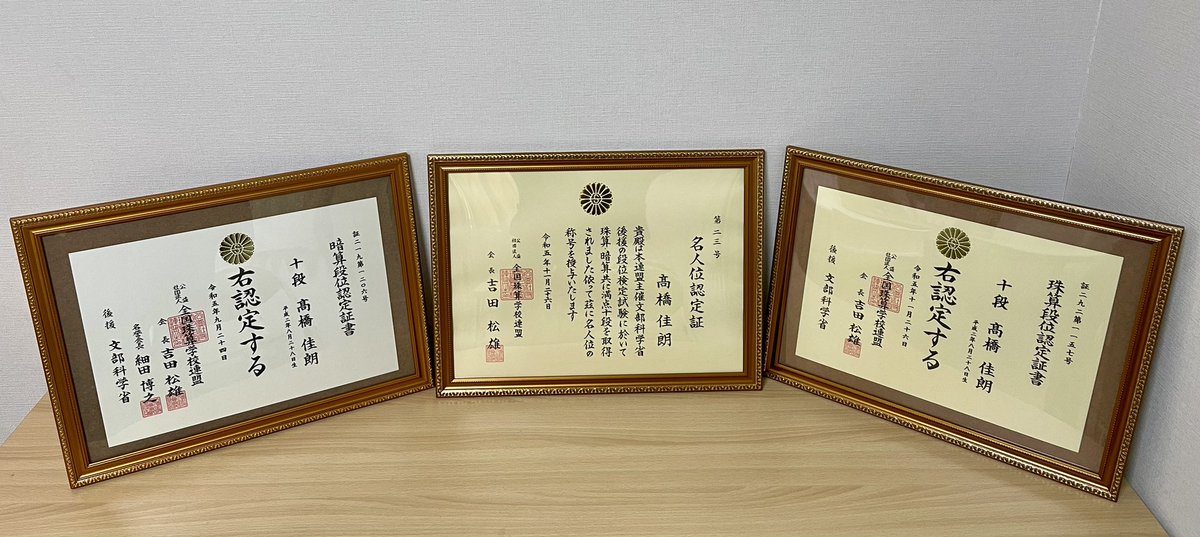 証二一九第一二〇六号
暗算段位認定証書
十段 髙橋佳朗
平成二年八月二十八日生
右認定する
令和五年九月二十四日
公益社団法人 全国珠算学校連盟
会長 吉田松雄
名誉会長 細田博之
後援 文部科学省
第二三号
名人位認定証
髙橋佳朗
貴殿は本連盟主催文部科学省
後援の段位検定試験に於いて
珠算・暗算共に満点十段を取得
されました依って茲に名人位の
称号を授与いたします
令和五年十一月二十六日
公益社団法人 全国珠算学校連盟
会長 吉田松雄
証二九二第一一五七号
珠算段位認定証書
十段 髙橋佳朗
平成二年八月二十八日生
右認定する
令和五年十一月二十六日
公益社団法人 全国珠算学校連盟
会長 吉田松雄
後援 文部科学省